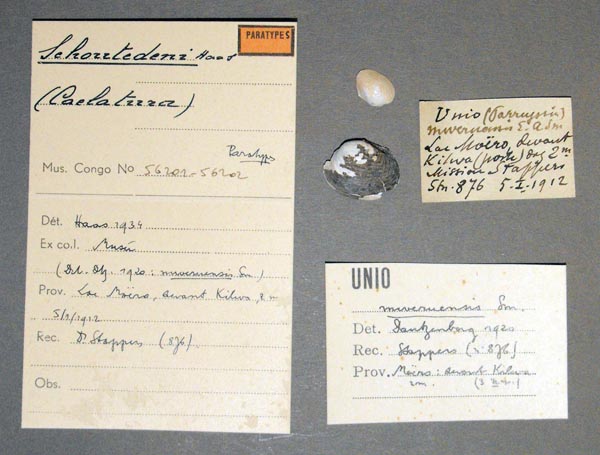 PARATYPES
Schoutedeni Haas
(Caelatura)
Paratyps
Mus. Congo No 56201-56202
Dét. Haas 1934
Ex col. Musée
(Dét. Dtz. 1920: mweruensis Sm.)
Prov. Lac Moëro, devant Kilwa, 2 m
5/1/1912
Rec. Dr Stappers (876)
Obs.
Unio (Parreysia)
mweruensis E. A. Sm
Lac Moëro, devant
Kilwa (poste) 2 m
Mission Stappers
Stn. 876 5-I-1912
UNIO
mweruensis Sm.
Dét. Dautzenberg 1920
Rec. Stappers (S. 876)
Prov. Moëro: devant Kilwa
2m.